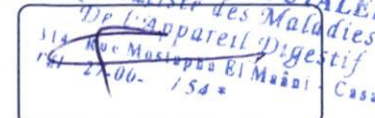 des Maladies
De l'Appareil Digestif
314 Rue Mostapha El Maâni - Casa
27-00- /54 *